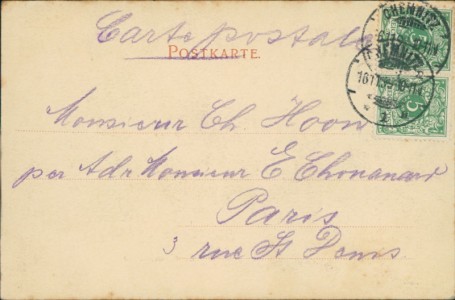 Carte postale
POSTKARTE.
CHEMNITZ
CHEMNITZ
5
5
Monsieur Ch. Hoon
per Adr Monsieur E Chouanard
Paris
3 rue St Denis.